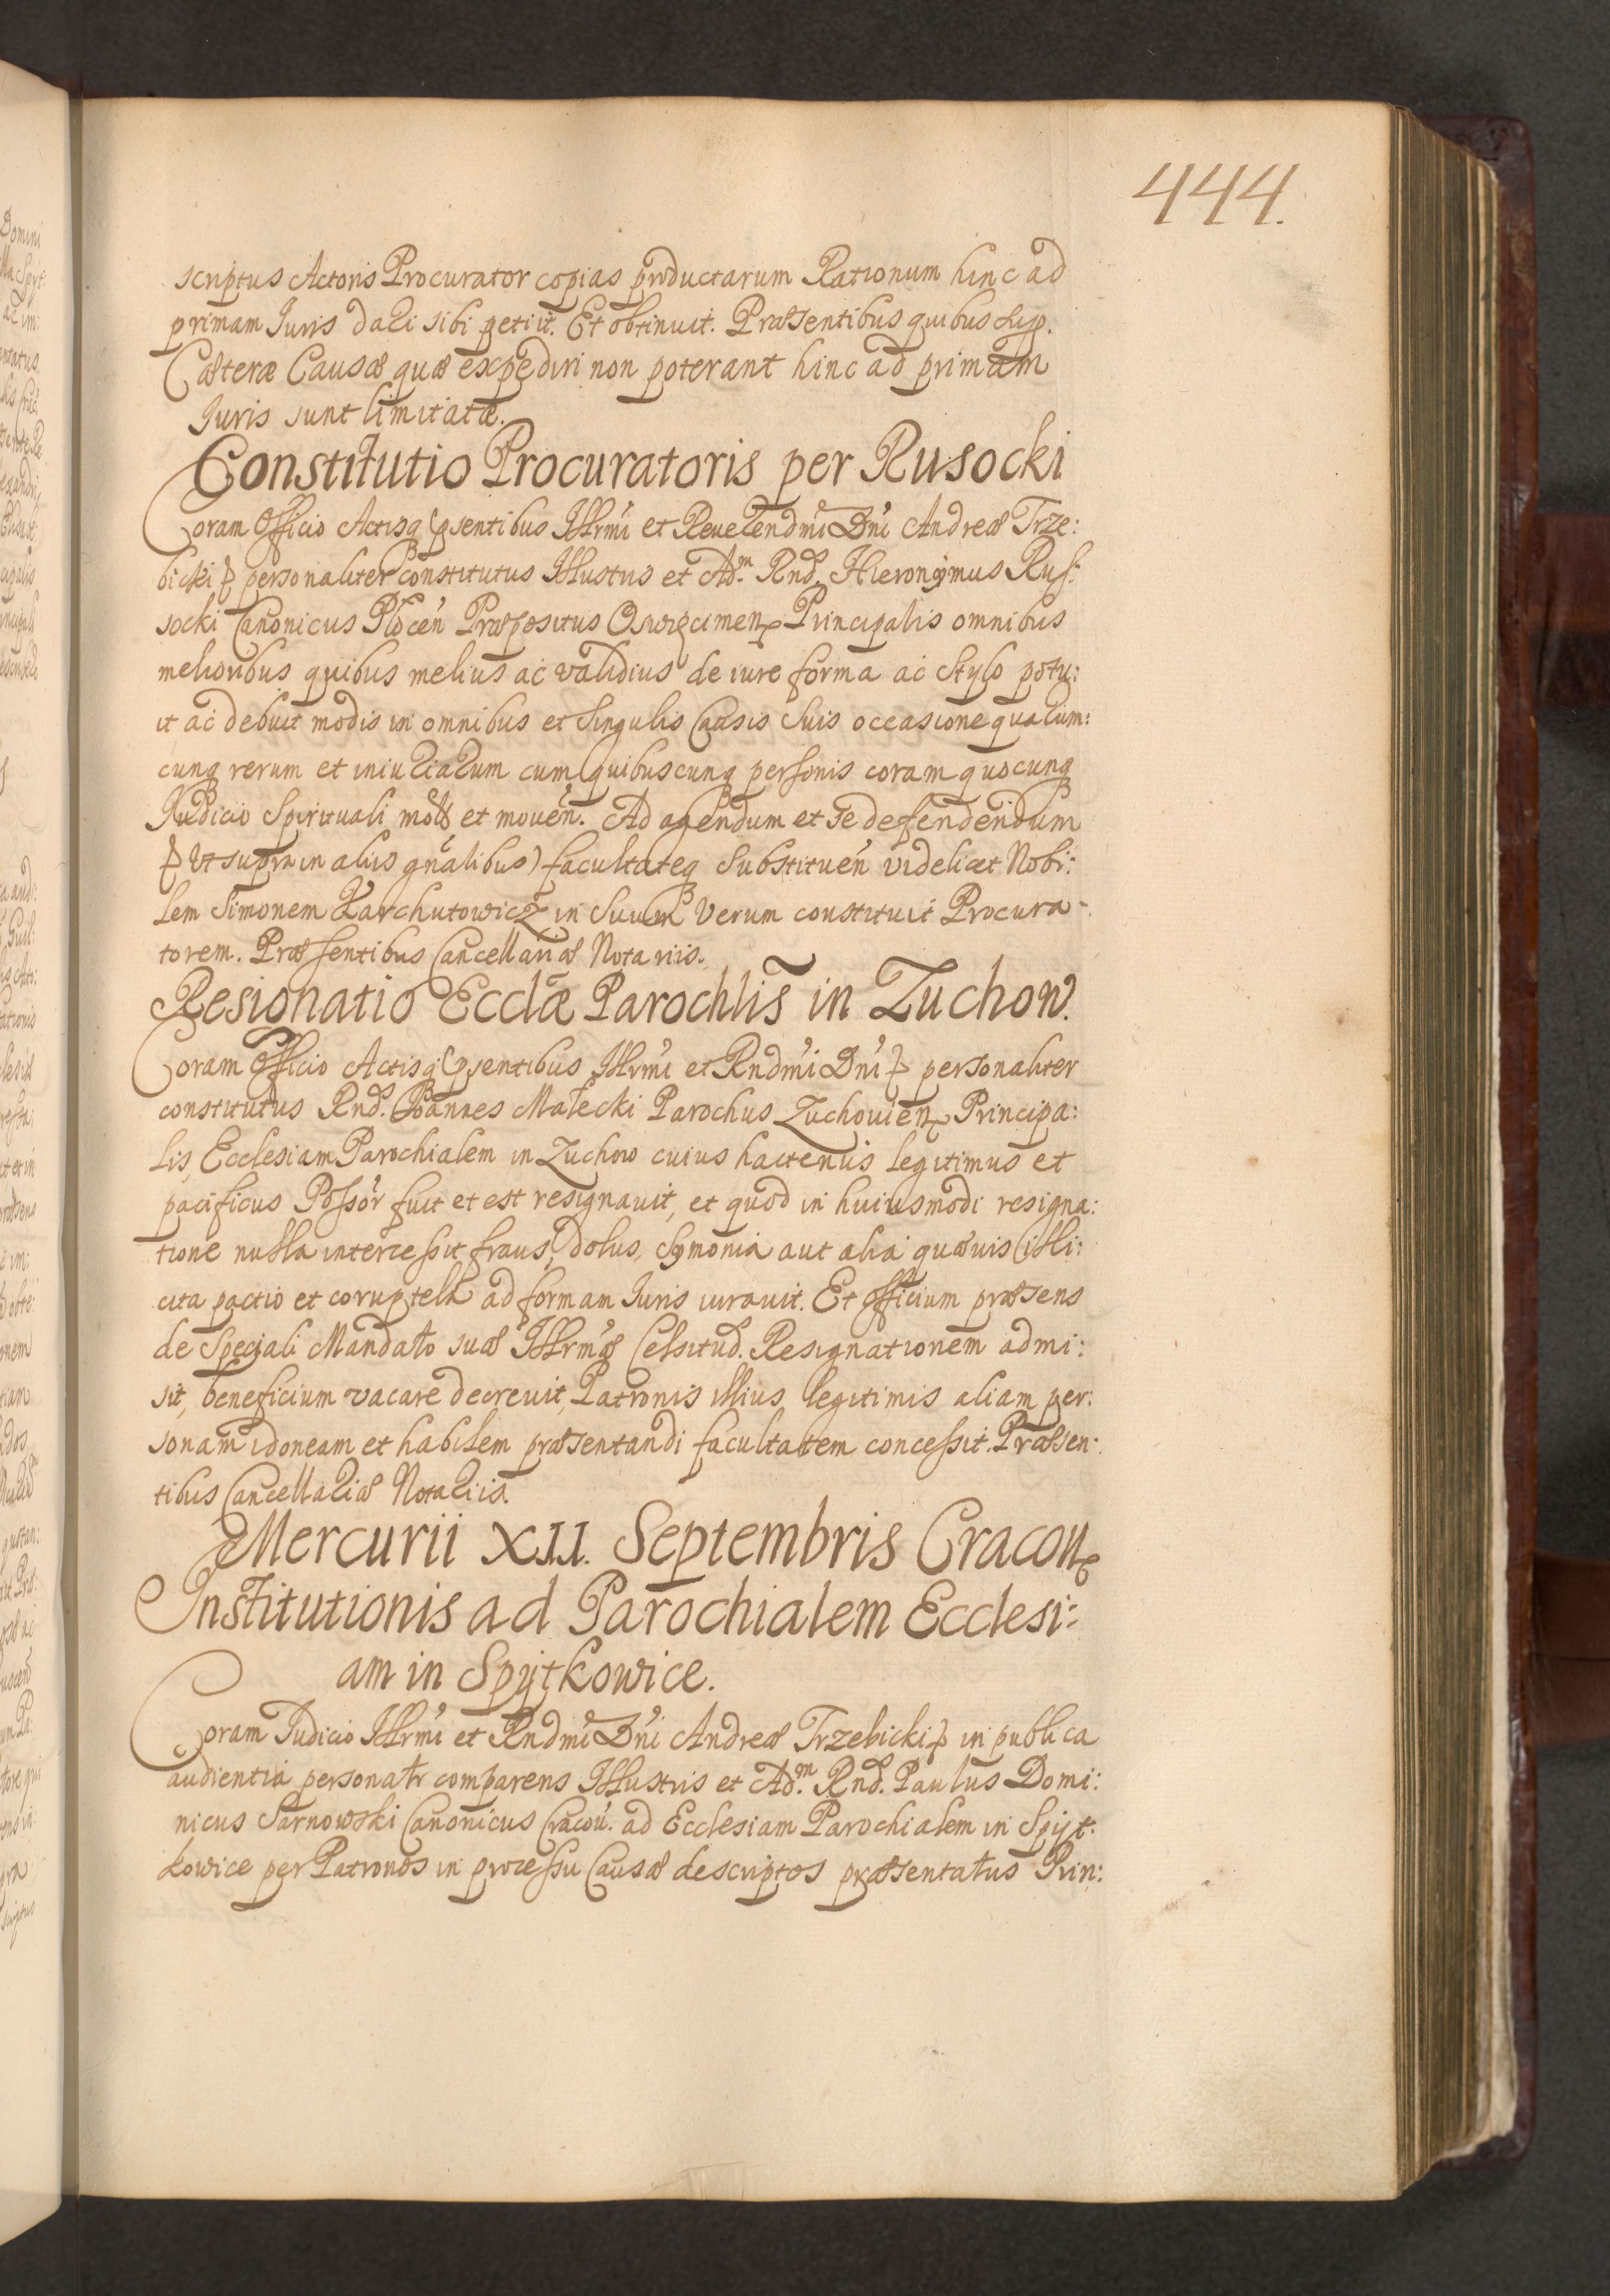 444.
scriptus Actoris Procurator copias productarum Rationum hinc ad
primam Iuris dari sibi petiit. Et obtinuit. Præsentibus quibus sup.
Cæteræ Causæ quæ expediri non poterant hinc ad primam
Iuris sunt limitatæ.
Constitutio Procuratoris per Rusocki
Coram Officio Actisq psentibus Illrmi et Reverendmi Dni Andreæ Trze:
bicki personaliter constitutus Illustris et Adm. Rnd. Hieronÿmus Rus:
socki Canonicus Plocen Præpositus Oswięcimen Principalis omnibus
melioribus quibus melius ac validius de iure forma ac Stylo potu:
it ac debuit modis in omnibus et Singulis Causis Suis occasione quarum:
cunq rerum et iniuriarum cum quibuscunq personis coram quocunq
Iudicio Spirituali motis et moven. Ad agendum et se defendendum
Ut supra in aliis gnalibus) facultateq Substituen videlicet Nobi:
lem Simonem Karchutowicz in Suum Verum constituit Procura-
torem. Præsentibus Cancellariæ Notariis.
Resignatio Ecclæ Parochlis in Zuchow.
Coram Officio Actisq psentibus Illrmi et Rndmi Dni personaliter
constitutus Rnd. Joannes Małecki Parochus Zuchovien Principa:
lis, Ecclesiam Parochialem in Zuchow cuius hactenus legitimus et
pacificus Possor fuit et est resignavit, et quod in huiusmodi resigna:
tione nulla intercessit fraus, dolus, Symonia aut alia quævis illi:
cita pactio et coruptela ad formam Iuris iuravit. Et Officium præsens
de Speciali Mandato suæ Illrmæ Celsitud. Resignationem admi:
sit, beneficium vacare decrevit, Patronis illius legitimis aliam per:
sonam idoneam et habilem præsentandi facultatem concessit. Præsen:
tibus Cancellariæ Notariis.
Mercurii XII. Septembris Cracov
Institutionis ad Parochialem Ecclesi:
am in Spÿtkowice.
Coram Iudicio Illrmi et Rndmi Dni Andreæ Trzebicki in publica
audientia personalr comparens Illustris et Adm. Rnd. Paulus Domi:
nicus Sarnowski Canonicus Cracov. ad Ecclesiam Parochialem in Spÿt:
kowice per Patronos in processu Causæ descriptos præsentatus Prin: